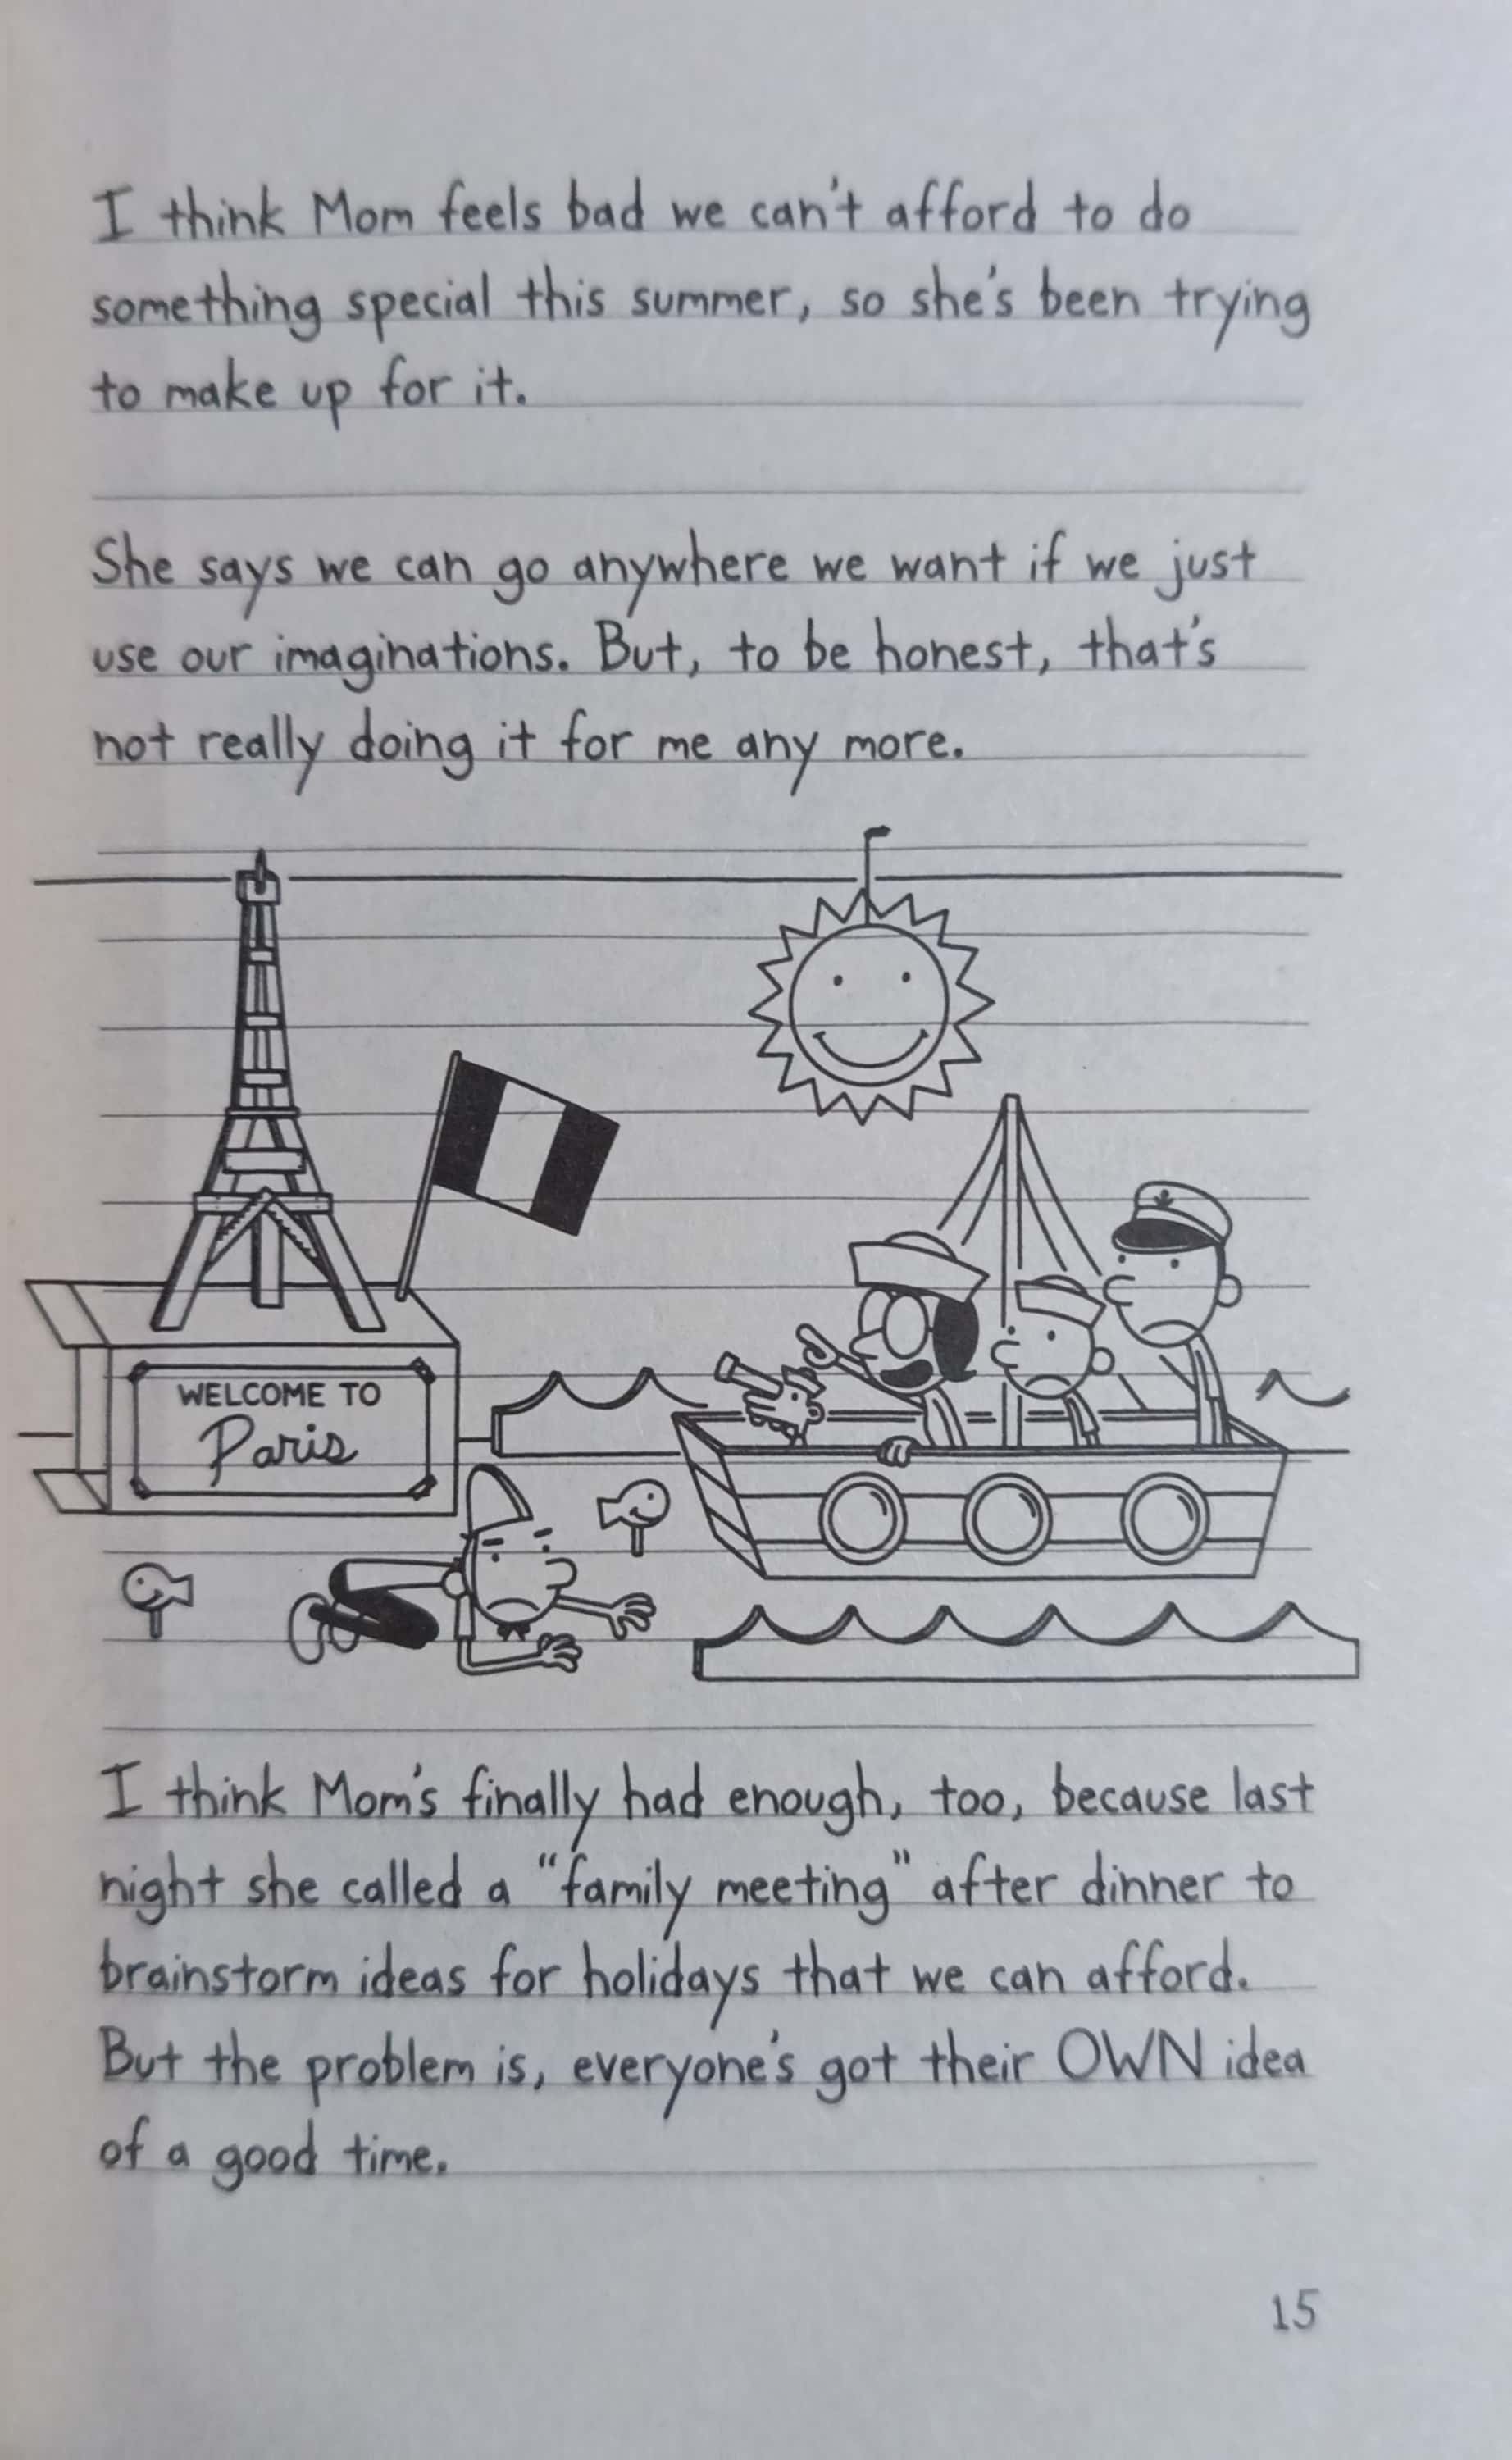 I think Mom feels bad we can't afford to do
something special this summer, so she's been trying
to make up for it.
She says we can go anywhere we want if we just
use our imaginations. But, to be honest, that's
not really doing it for me any more.
WELCOME TO
Paris
I think Mom's finally had enough, too, because last
night she called a “family meeting” after dinner to
brainstorm ideas for holidays that we can afford.
But the problem is, everyone's got their OWN idea
of a good time.
15